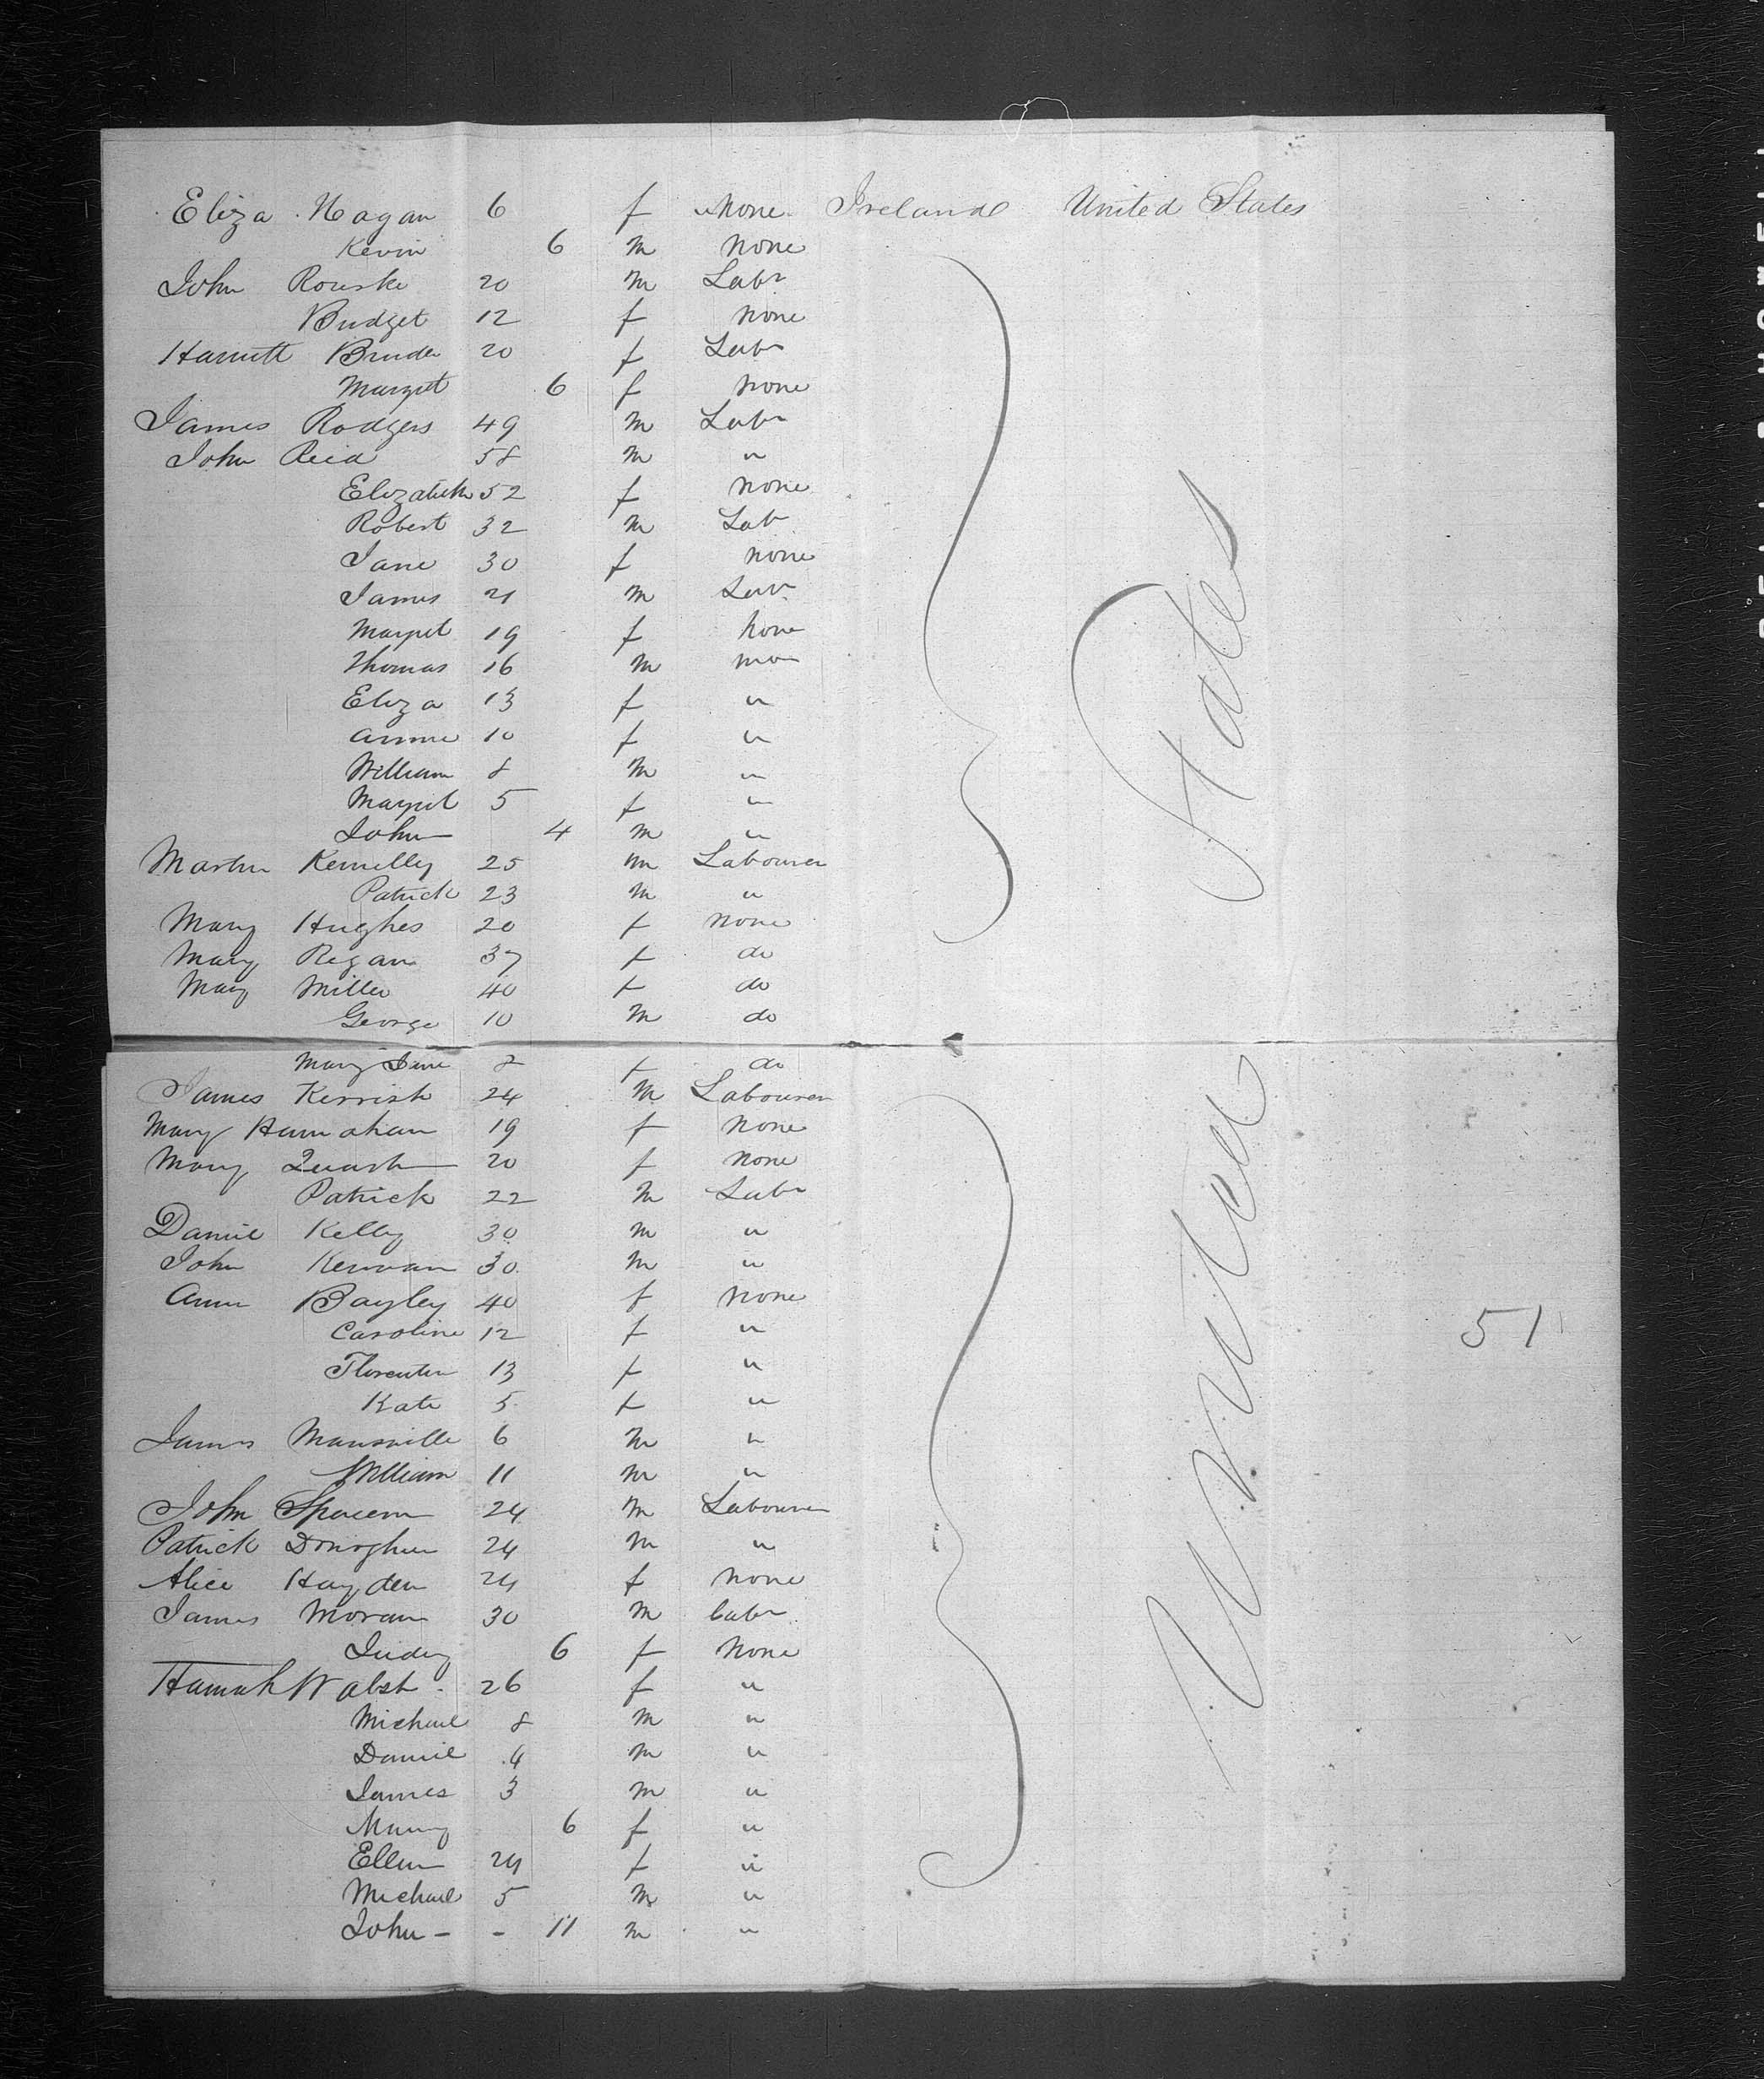 Eliza Nagan 6 f None Ireland United States
Kevin 6 m none
John Rourke 20 m Labr
Bridget 12 f none
20 f Labr
Margret 6 f none
James Rodgers 49 m Labr
John Reid 58 m "
Elizabeth 52 f none
Robert 32 m Lab
Jane 30 f none
James 21 m Labr
Margret 19 f none
Thomas 16 m
Eliza 13 f "
Annie 10 f "
William 8 m "
Margret 5 f "
John 4 m "
Martin Kennelly 25 m Labourer
Patrick 23 m "
Mary Hughes 20 f none
Mary Regan 37 f do
Mary Miller 40 f do
George 10 m do
Mary Jane f do
James Kerrish 24 m Labourer
Mary Hannahan 19 f None
Mary 20 f none
Patrick 22 m Labr
Daniel Kelly 30 m "
John Kerwan 30 m "
Ann Bayley 40 f none
Caroline 12 f "
13 f "
Kate 5 f "
James Mansville 6 m "
William 11 m "
John 24 m Labourer
Patrick Donoghue 24 m "
Alice Hayden 24 f none
James Moran 30 m Labr
Judy 6 f None
Hannah Walsh 26 f "
Michael 8 m "
Daniel 4 m "
James 3 m "
Mary 6 f "
Ellen 24 f "
Michael 5 m "
John - - 11 m "
United States
51